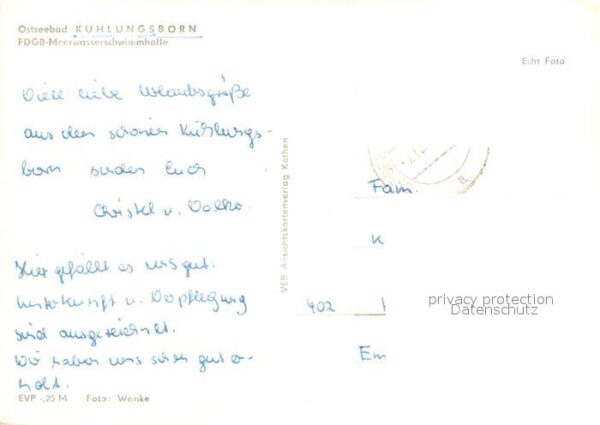 Ostseebad KÜHLUNGSBORN
FDGB-Meerwasserschwimmhalle
Echt Foto
Viele liebe Urlaubsgrüße
aus dem schönen Kühlungs-
born senden Euch
Christel u. Volko.
Hier gefällt es uns gut.
Unterkunft u. Verpflegung
sind ausgezeichnet.
Wir haben uns schon gut er-
holt.
EVP -,25 M Foto: Wanke
VEB Ansichtskartenverlag Köthen
Fam.
K
402
Em
privacy protection
Datenschutz